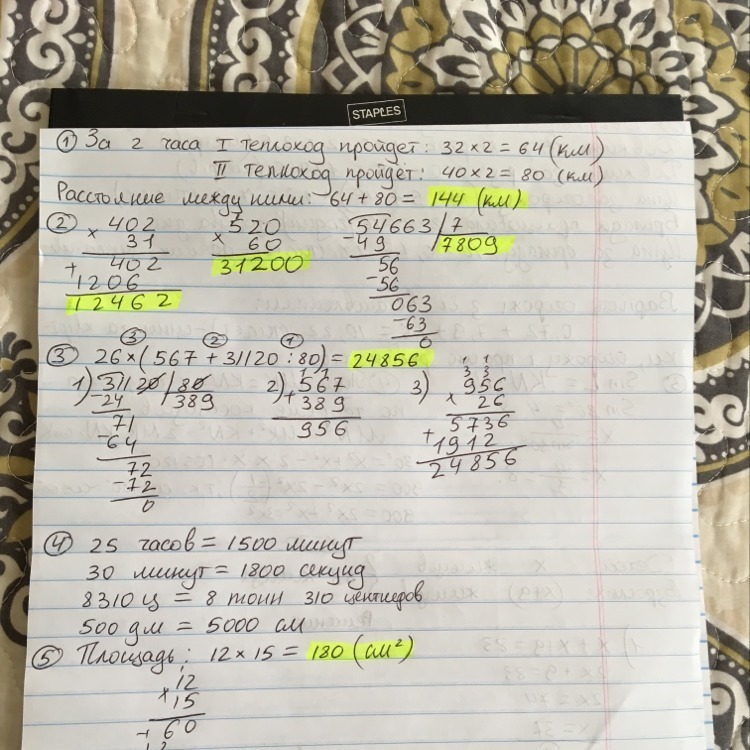 STAPLES
① За 2 часа I теплоход пройдёт: 32 × 2 = 64 (км)
II теплоход пройдёт: 40 × 2 = 80 (км)
Расстояние между ними: 64 + 80 = 144 (км)
② × 402 × 520 54663 | 7
31 60 - 49 7809
+ 402 31200 56
1206 - 56
12462 063
- 63
0
③ ② ①
③ 26 × (567 + 31120 : 80) = 24856
1) 31120 | 80 2) 567 3) 956
- 24 389 + 389 × 26
71 956 5736
- 64 + 1912
72 24856
- 72
0
④ 25 часов = 1500 минут
30 минут = 1800 секунд
8310 ц = 8 тонн 310 центнеров
500 дм = 5000 см
⑤ Площадь: 12 × 15 = 180 (см²)
12
× 15
+ 60
12